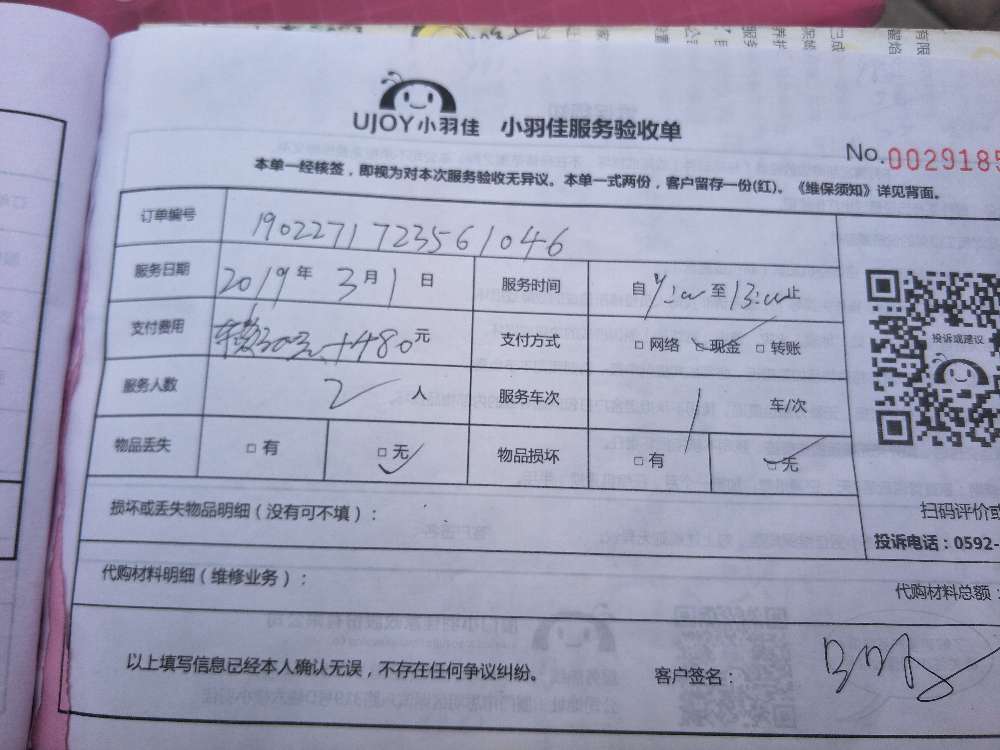 UJOY小羽佳 小羽佳服务验收单
No.0029185
本单一经核签，即视为对本次服务验收无异议。本单一式两份，客户留存一份(红)。《维保须知》详见背面。
订单编号 1902271723561046
服务日期 2019年3月1日 服务时间 自 至13:00止
支付费用 +480元 支付方式 □网络 □现金 □转账
服务人数 2人 服务车次 1 车/次
物品丢失 □有 □无 物品损坏 □有 □无
投诉或建议
扫码评价或
投诉电话：0592-
损坏或丢失物品明细（没有可不填）：
代购材料明细（维修业务）： 代购材料总额：
以上填写信息已经本人确认无误，不存在任何争议纠纷。 客户签名：